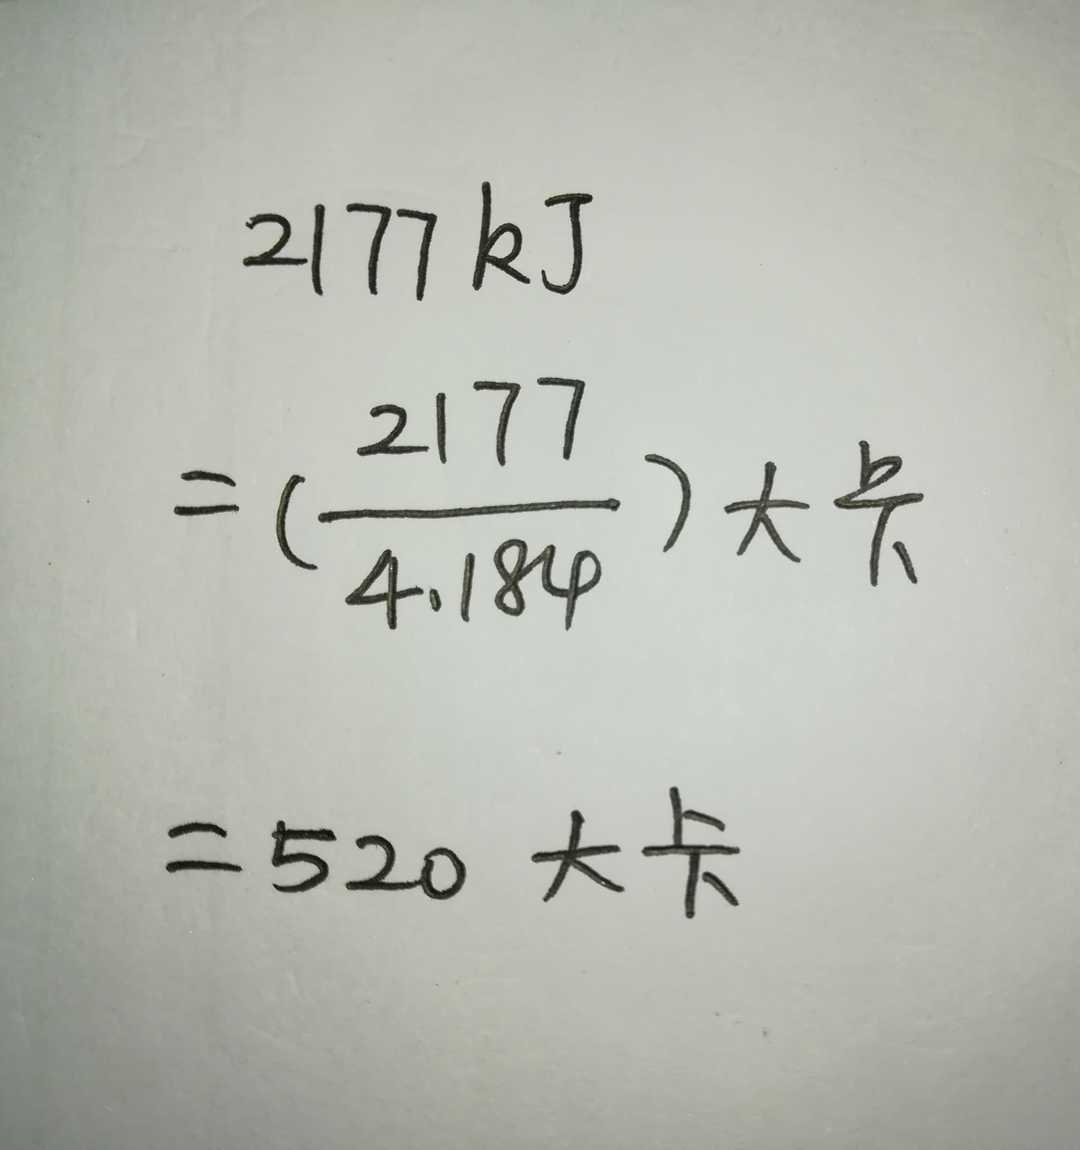 2177 kJ
=(2177/4.184)大卡
=520 大卡